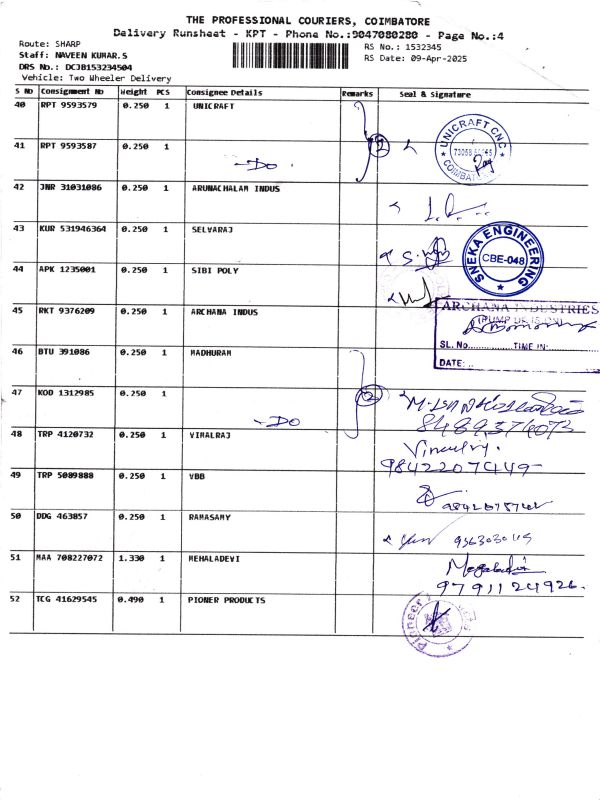 THE PROFESSIONAL COURIERS, COIMBATORE
Delivery Runsheet - KPT - Phone No.:9047080280 - Page No.:4
Route: SHARP
RS No.: 1532345
Staff: NAVEEN KUMAR.S
RS Date: 09-Apr-2025
DRS No.: DCJB153234504
Vehicle: Two Wheeler Delivery
S No Consignment No Height PCS Consignee Details Remarks Seal & Signature
40 RPT 9593579 0.250 1 UNICRAFT
41 RPT 9593587 0.250 1
-Do. 2
UNICRAFT CNC
42 JNR 31031086 0.250 1 ARUNACHALAM INDUS
43 KUR 531946364 0.250 1 SELVARAJ
SNEKA ENGINEERING
CBE-048
44 APK 1235001 0.250 1 SIBI POLY
45 RKT 9376209 0.250 1 ARCHANA INDUS
ARCHANA INDUSTRIES
SL. No. TIME IN:
DATE:
46 BTU 391086 0.250 1 MADHURAM
47 KOD 1312985 0.250 1
-DO 2
8489376073
48 TRP 4120732 0.250 1 VIRALRAJ
9842207449
49 TRP 5089888 0.250 1 VBB
50 DDG 463857 0.250 1 RAMASAMY
51 MAA 708227072 1.330 1 MEHALADEVI
9791124926.
52 TCG 41629545 0.490 1 PIONER PRODUCTS
Pioneer